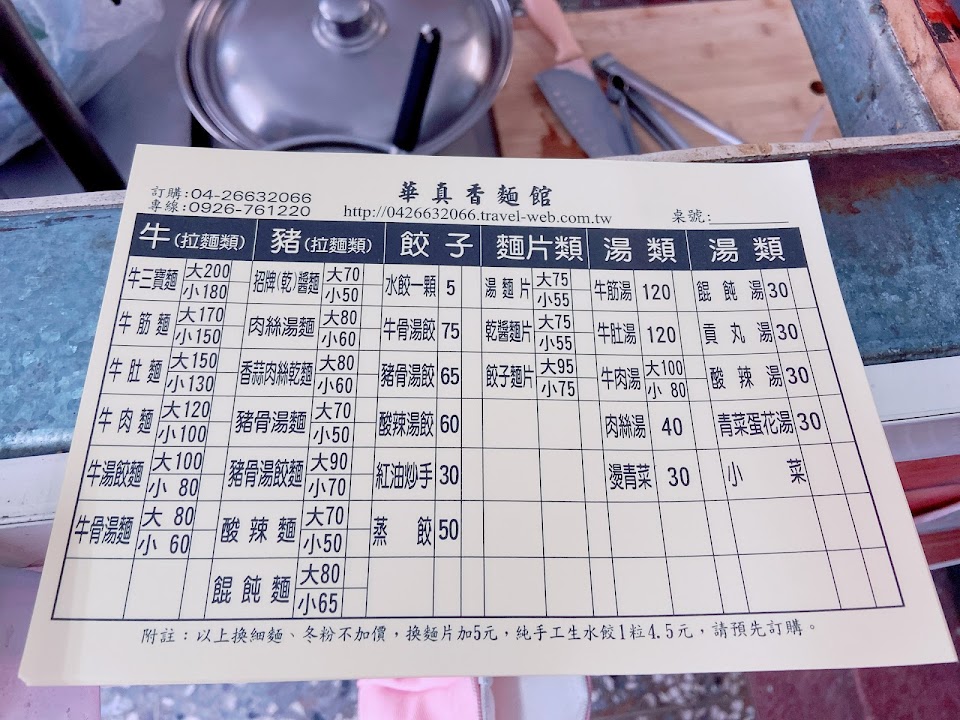 華真香麵館
訂購:04-26632066
專線:0926-761220
http://0426632066.travel-web.com.tw
桌號:
牛(拉麵類) 豬(拉麵類) 餃子 麵片類 湯類 湯類
牛三寶麵 大200 小180 招牌(乾)醬麵 大70 小50 水餃一顆 5 湯麵片 大75 小55 牛筋湯 120 餛飩湯 30
牛筋麵 大170 小150 肉絲湯麵 大80 小60 牛骨湯餃 75 乾醬麵片 大75 小55 牛肚湯 120 貢丸湯 30
牛肚麵 大150 小130 香蒜肉絲乾麵 大80 小60 豬骨湯餃 65 餃子麵片 大95 小75 牛肉湯 大100 小80 酸辣湯 30
牛肉麵 大120 小100 豬骨湯麵 大70 小50 酸辣湯餃 60 肉絲湯 40 青菜蛋花湯 30
牛湯餃麵 大100 小80 豬骨湯餃麵 大90 小70 紅油炒手 30 燙青菜 30 小菜
牛骨湯麵 大80 小60 酸辣麵 大70 小50 蒸餃 50
餛飩麵 大80 小65
附註：以上換細麵、冬粉不加價，換麵片加5元，純手工生水餃1粒4.5元，請預先訂購。